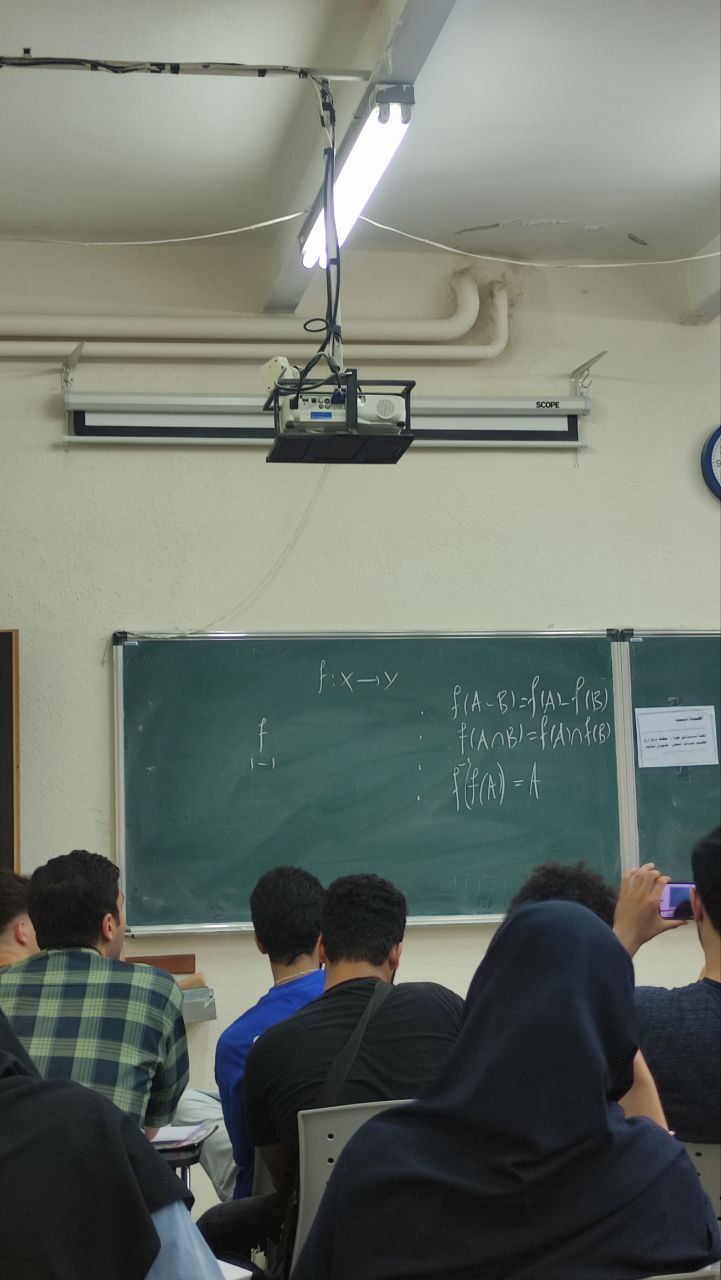 SCOPE
f : X → Y
f
1-1
f(A-B)=f(A)-f(B)
f(A∩B)=f(A)∩f(B)
f⁻¹(f(A))=A